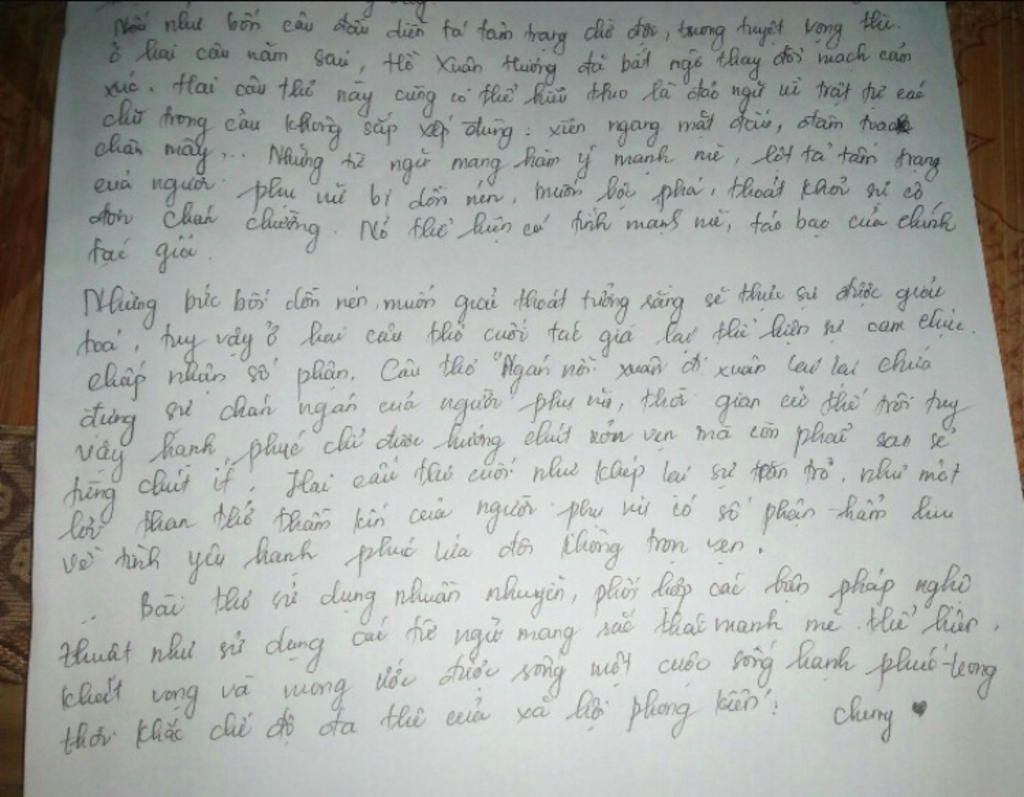 Nếu như bốn câu đầu diễn tả tâm trạng chờ đợi, trong tuyệt vọng thì
ở hai câu năm sáu, Hồ Xuân Hương đã bất ngờ thay đổi mạch cảm
xúc. Hai câu thơ này cũng có thể hiểu theo là đảo ngữ vì trật tự các
chữ trong câu không sắp xếp đúng: xiên ngang mặt đất, đâm toạc
chân mây... Những từ ngữ mang hàm ý mạnh mẽ, lột tả tâm trạng
của người phụ nữ bị dồn nén, muốn bộc phá, thoát khỏi sự cô
đơn chán chường. Nó thể hiện cá tính mạnh mẽ, táo bạo của chính
tác giả.
Những bức bối dồn nén muốn giải thoát tưởng rằng sẽ thực sự được giải
toả, tuy vậy ở hai câu thơ cuối tác giả lại thể hiện sự cam chịu
chấp nhận số phận. Câu thơ "Ngán nỗi xuân đi xuân lại lại chứa
đựng sự chán ngán của người phụ nữ, thời gian cứ thế trôi tuy
vậy hạnh phúc chỉ được hưởng chút vẹn mà còn phải san sẻ
từng chút ít. Hai câu thơ cuối như khép lại sự trăn trở, như một
lời than thở thầm kín của người phụ nữ có số phận hẩm hiu
về tình yêu hạnh phúc lứa đôi không trọn vẹn.
Bài thơ sử dụng nhuần nhuyễn, phối hợp các biện pháp nghệ
thuật như sử dụng các từ ngữ mang sắc thái mạnh mẽ thể hiện
khát vọng và mong ước được sống một cuộc sống hạnh phúc trong
thời khắc chế độ đa thê của xã hội phong kiến! Cherry ♥